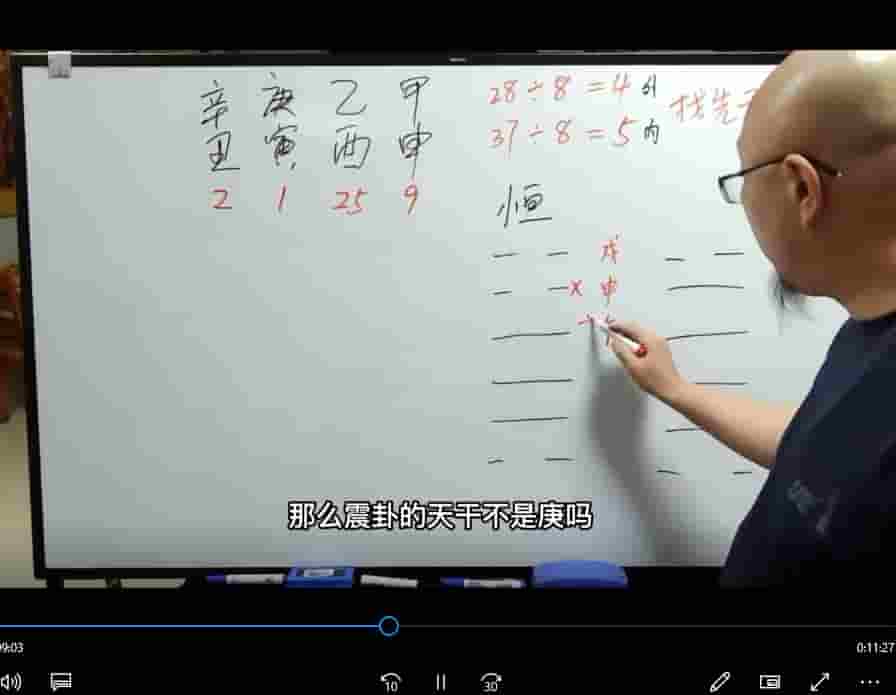 辛 庚 乙 甲
丑 寅 酉 申
2 1 25 9
28÷8=4外
37÷8=5内
找先天
恒
戌
× 申
午
那么震卦的天干不是庚吗
0:11:27
10
30